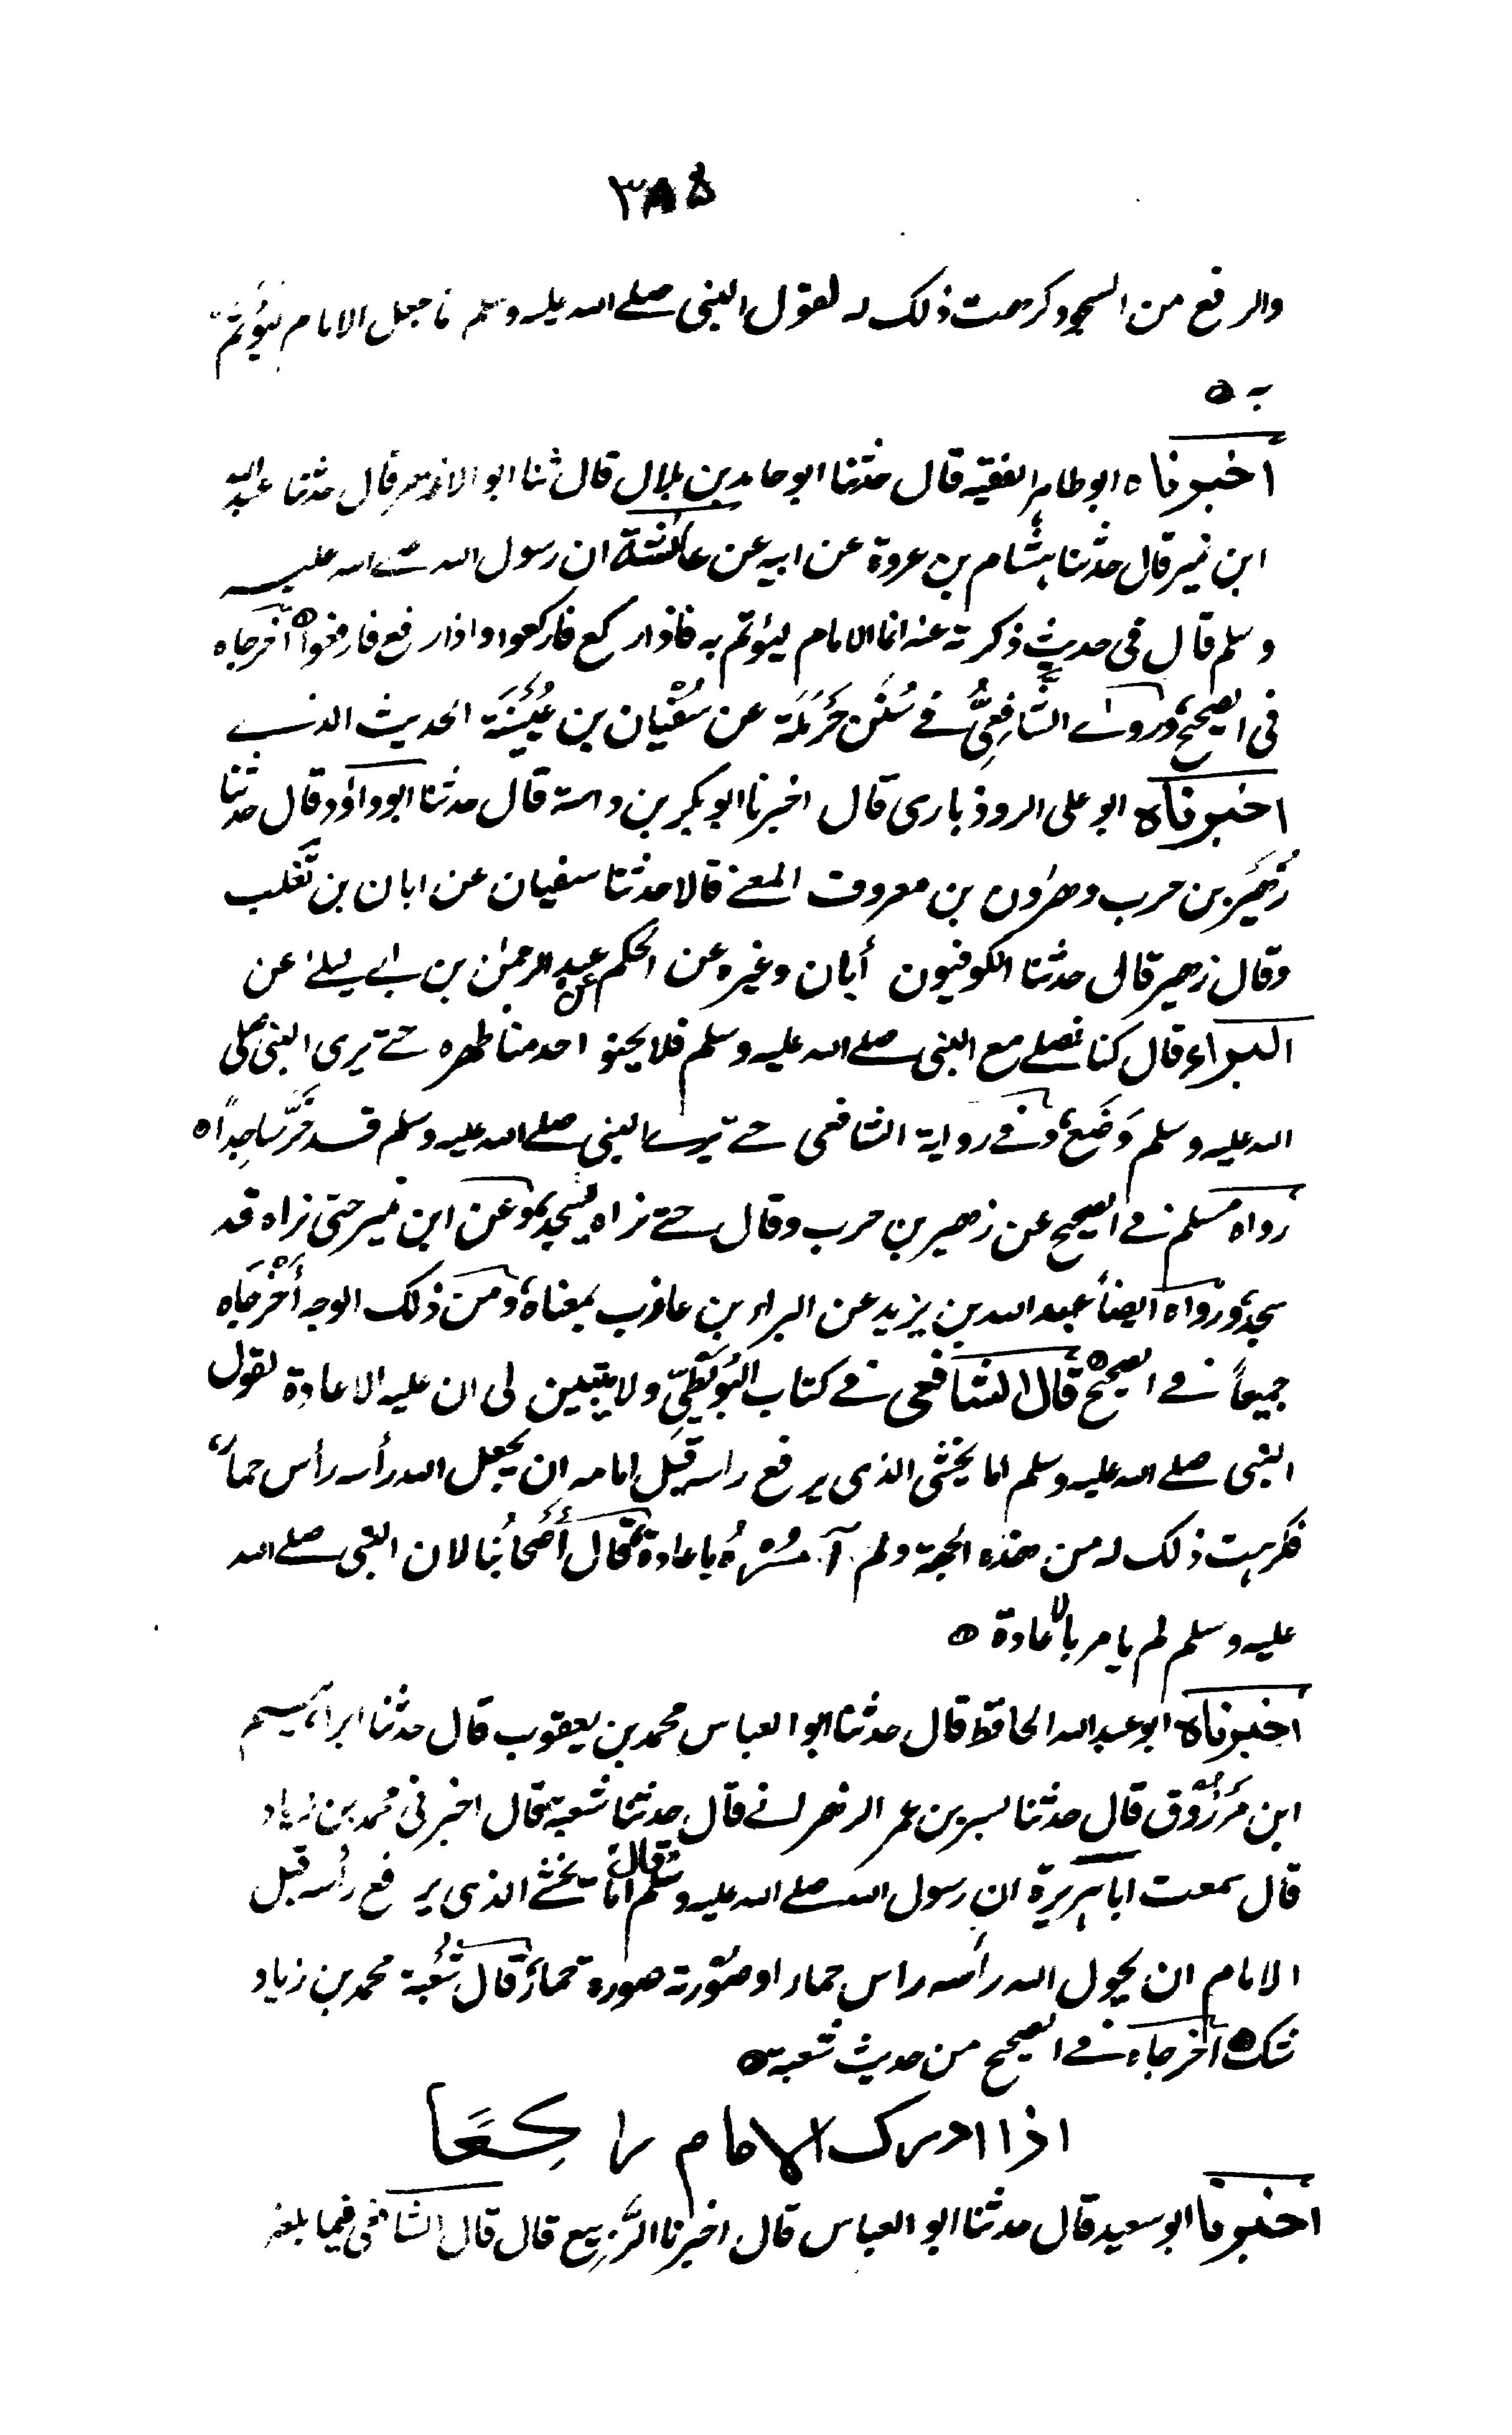 ٣٨٥
والرفع من السجود كرهت ذلك له لقول النبى صلے الله عليه وسلم انما جعل الامام ليؤتمّ
به ه
أخبرناه ابو طاهر الفقيه قال حدثنا ابو حامد بن بلال قال ثنا ابو الازهر قال حدثنا عبد الله
ابن نمير قال حدثنا هشام بن عروة عن ابيه عن عائشة ان رسول الله صلے الله عليه
وسلم قال فى حديث ذكرته عنه انما الامام ليؤتم به فاذا ركع فاركعوا واذا رفع فارفعوا ه أخرجاه
فى الصحيح، وروى الشافعىُّ فے سُنَن حَرْمَلَة عن سُفْيان بن عُيَيْنَة الحديث الذے
اخبرناه ابو على الروذبارى قال اخبرنا ابو بكر بن داسة قال حدثنا ابو داؤد قال حدثنا
زُهَيْر بن حرب وهرون بن معروف المعنے قالا حدثنا سفيان عن ابان بن تَغْلب
وقال زهير قال حدثنا الكوفيون أبان وغيره عن الحكم عن عبد الرحمٰن بن ابے ليلے عن
البراء قال كنا نصلے مع النبى صلے الله عليه وسلم فلا يحنو احد منا ظهره حتے يرى النبى صلى
الله عليه وسلم وَضَعَ، وفے رواية الشافعى حتے يرى النبى صلے الله عليه وسلم قد خَرَّ ساجِدًا ه
رواه مسلم فے الصحيح عن زهير بن حرب وقال حتے نراه يسجد، وعن ابن نمير حتى نراه قد
سجد، ورواه ايضاً عبد الله بن يزيد عن البراء بن عازب بمعناه، ومن ذلك الوجه أَخْرَجَاه
جميعاً فے الصحيح ه قال الشافعى فے كتاب البُوَيْطِىّ ولا يتبين لى ان عليه الاعادة لقول
النبى صلے الله عليه وسلم اما يخشى الذى يرفع راسه قبل امامه ان يجعل الله رأسه رأس حمار،
فكرهت ذلك له من هذه الجهة ولم آمُرْهُ باعادة، قال أَصْحابُنا لان النبى صلے الله
عليه وسلم لم يامر بالاعادة ه
أخبرناه ابو عبد الله الحافظ قال حدثنا ابو العباس محمد بن يعقوب قال حدثنا ابراهيم
ابن مَرْزُوق قال حدثنا بشر بن عمر الزهرانے قال حدثنا شعبة قال اخبرنى محمد بن زياد
قال سمعت ابا هريرة ان رسول الله صلے الله عليه وسلم قال اما يخشے الذى يرفع رأسه قبل
الامام ان يحول الله رأسه راس حمار او صُورته صورة حمار، قال شُعْبة محمد بن زياد
شك ه أخرجاه فے الصحيح من حديث شعبة ه
اذا ادرك الامام راكِعًا
اخبرنا ابو سعيد قال حدثنا ابو العباس قال اخبرنا الرَّبِيع قال قال الشافعى فيما بلغه